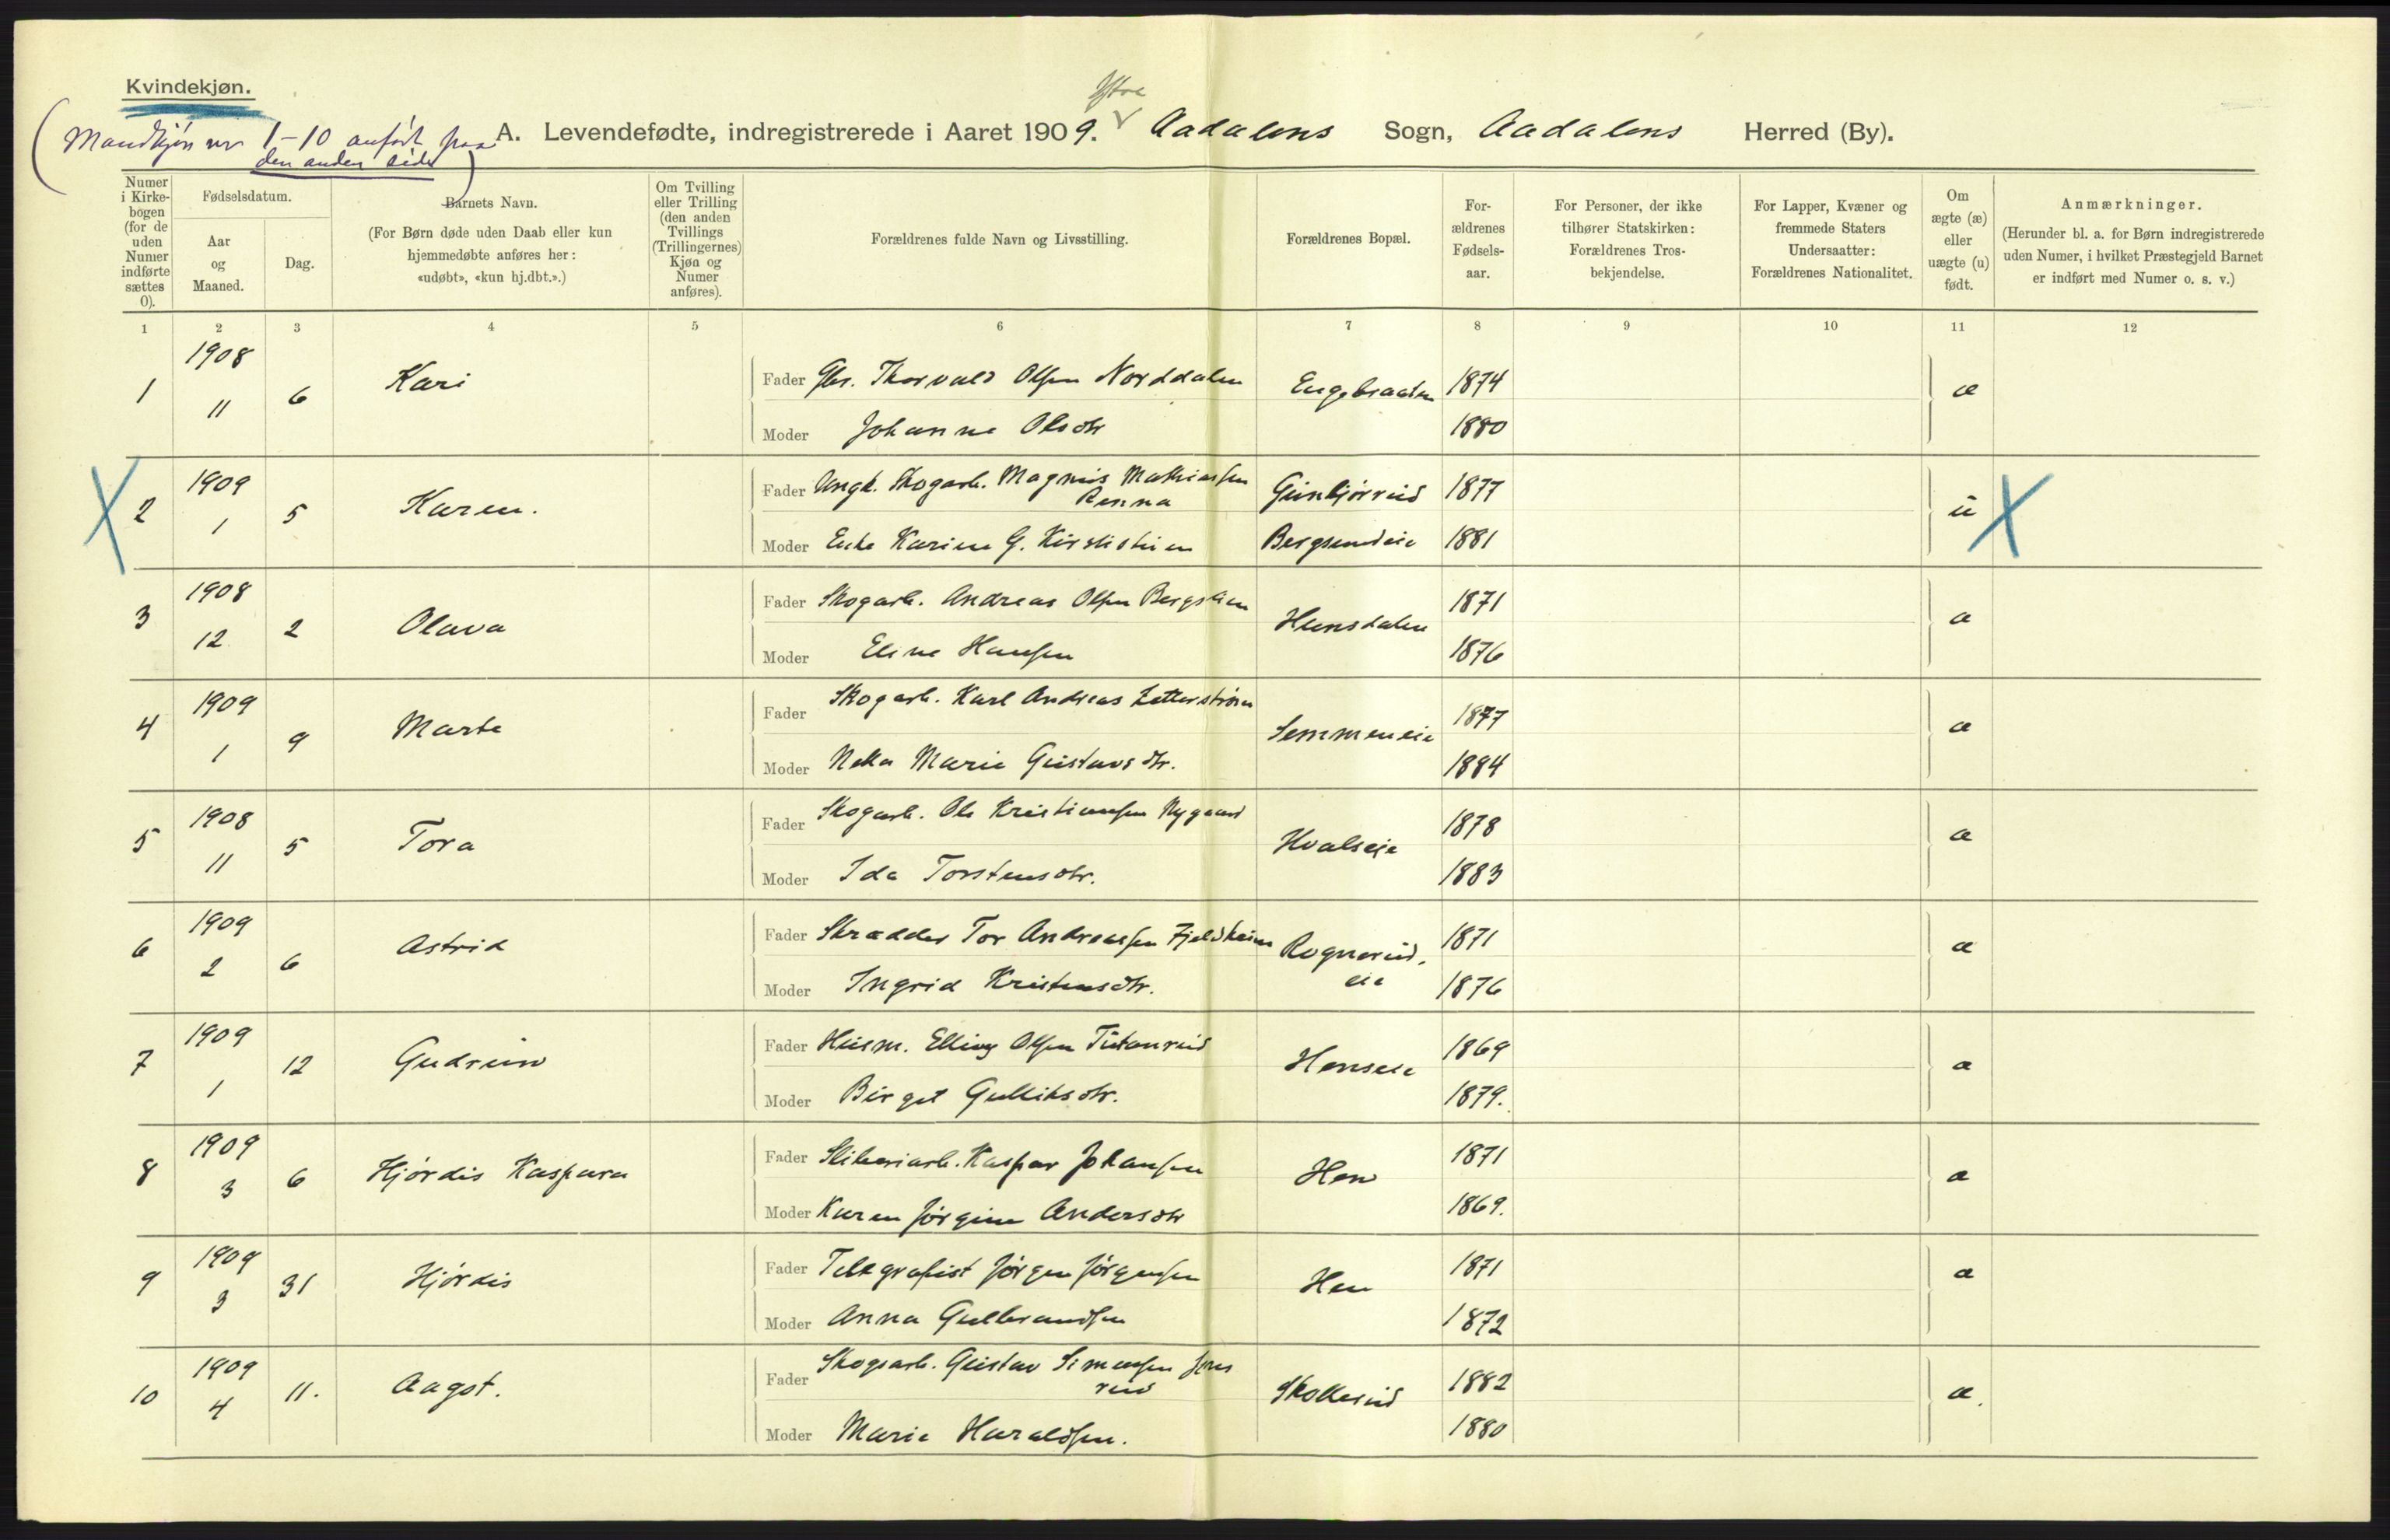 Kvindekjøn.
(Mandkjøn nr 1-10 anført paa
den anden side)
Ytre
A. Levendefødte, indregistrerede i Aaret 1909. Aadalens Sogn, Aadalens Herred (By).
Numer i Kirkebogen (for de uden Numer indførte sættes 0).
Fødselsdatum.
Aar og Maaned.
Dag.
Barnets Navn.
(For Børn døde uden Daab eller kun hjemmedøbte anføres her: «udøbt», «kun hj.dbt.».)
Om Tvilling eller Trilling (den anden Tvillings (Trillingernes) Kjøn og Numer anføres).
Forældrenes fulde Navn og Livsstilling.
Forældrenes Bopæl.
Forældrenes Fødselsaar.
For Personer, der ikke tilhører Statskirken: Forældrenes Trosbekjendelse.
For Lapper, Kvæner og fremmede Staters Undersaatter: Forældrenes Nationalitet.
Om ægte (æ) eller uægte (u) født.
Anmærkninger.
(Herunder bl. a. for Børn indregistrerede uden Numer, i hvilket Præstegjeld Barnet er indført med Numer o. s. v.)
1 2 3 4 5 6 7 8 9 10 11 12
1 1908 11 6 Kari Fader Gbr. Thorvald Olsen Norddalen Engebraaten 1874 æ
Moder Johanne Olsdtr 1880
X 2 1909 1 5 Karen. Fader Ungk. Skogarb. Magnus Mathiassen Renna Gunbjørrud 1877 u X
Moder Enke Karine G. Kirstistuen Bergsundeie 1881
3 1908 12 2 Olava Fader Skogarb. Andreas Olsen Bergslien Hunsdalen 1871 æ
Moder Eline Hansen 1876
4 1909 1 9 Marte Fader Skogarb. Karl Andreas Zetterstrøm Semmeneie 1877 æ
Moder Marie Gustavsdtr. 1884
5 1908 11 5 Tora Fader Skogarb. Ole Kristiansen Nygaard Hvalseie 1878 æ
Moder Ida Torstensdtr. 1883
6 1909 2 6 Astrid Fader Skrædder Tor Andreassen Fjeldheim Rognerud. eie 1871 æ
Moder Ingrid Kristensdtr. 1876
7 1909 1 12 Gudrun Fader Husm. Elling Olsen Tutanrud Henseie 1869 æ
Moder Birget Gulliksdtr. 1879.
8 1909 3 6 Hjørdis Kaspara Fader Sliberiarb. Kaspar Johansen Hen 1871 æ
Moder Karen Jørgine Andersdtr 1869.
9 1909 3 31 Hjørdis Fader Telegrafist Jørgen Jørgensen Hen 1871 æ
Moder Anna Gulbrandsen 1872
10 1909 4 11. Aagot. Fader Skogsarb. Gustav Simensen Jonsrud Skollerud 1882 æ.
Moder Marie Haraldsen. 1880